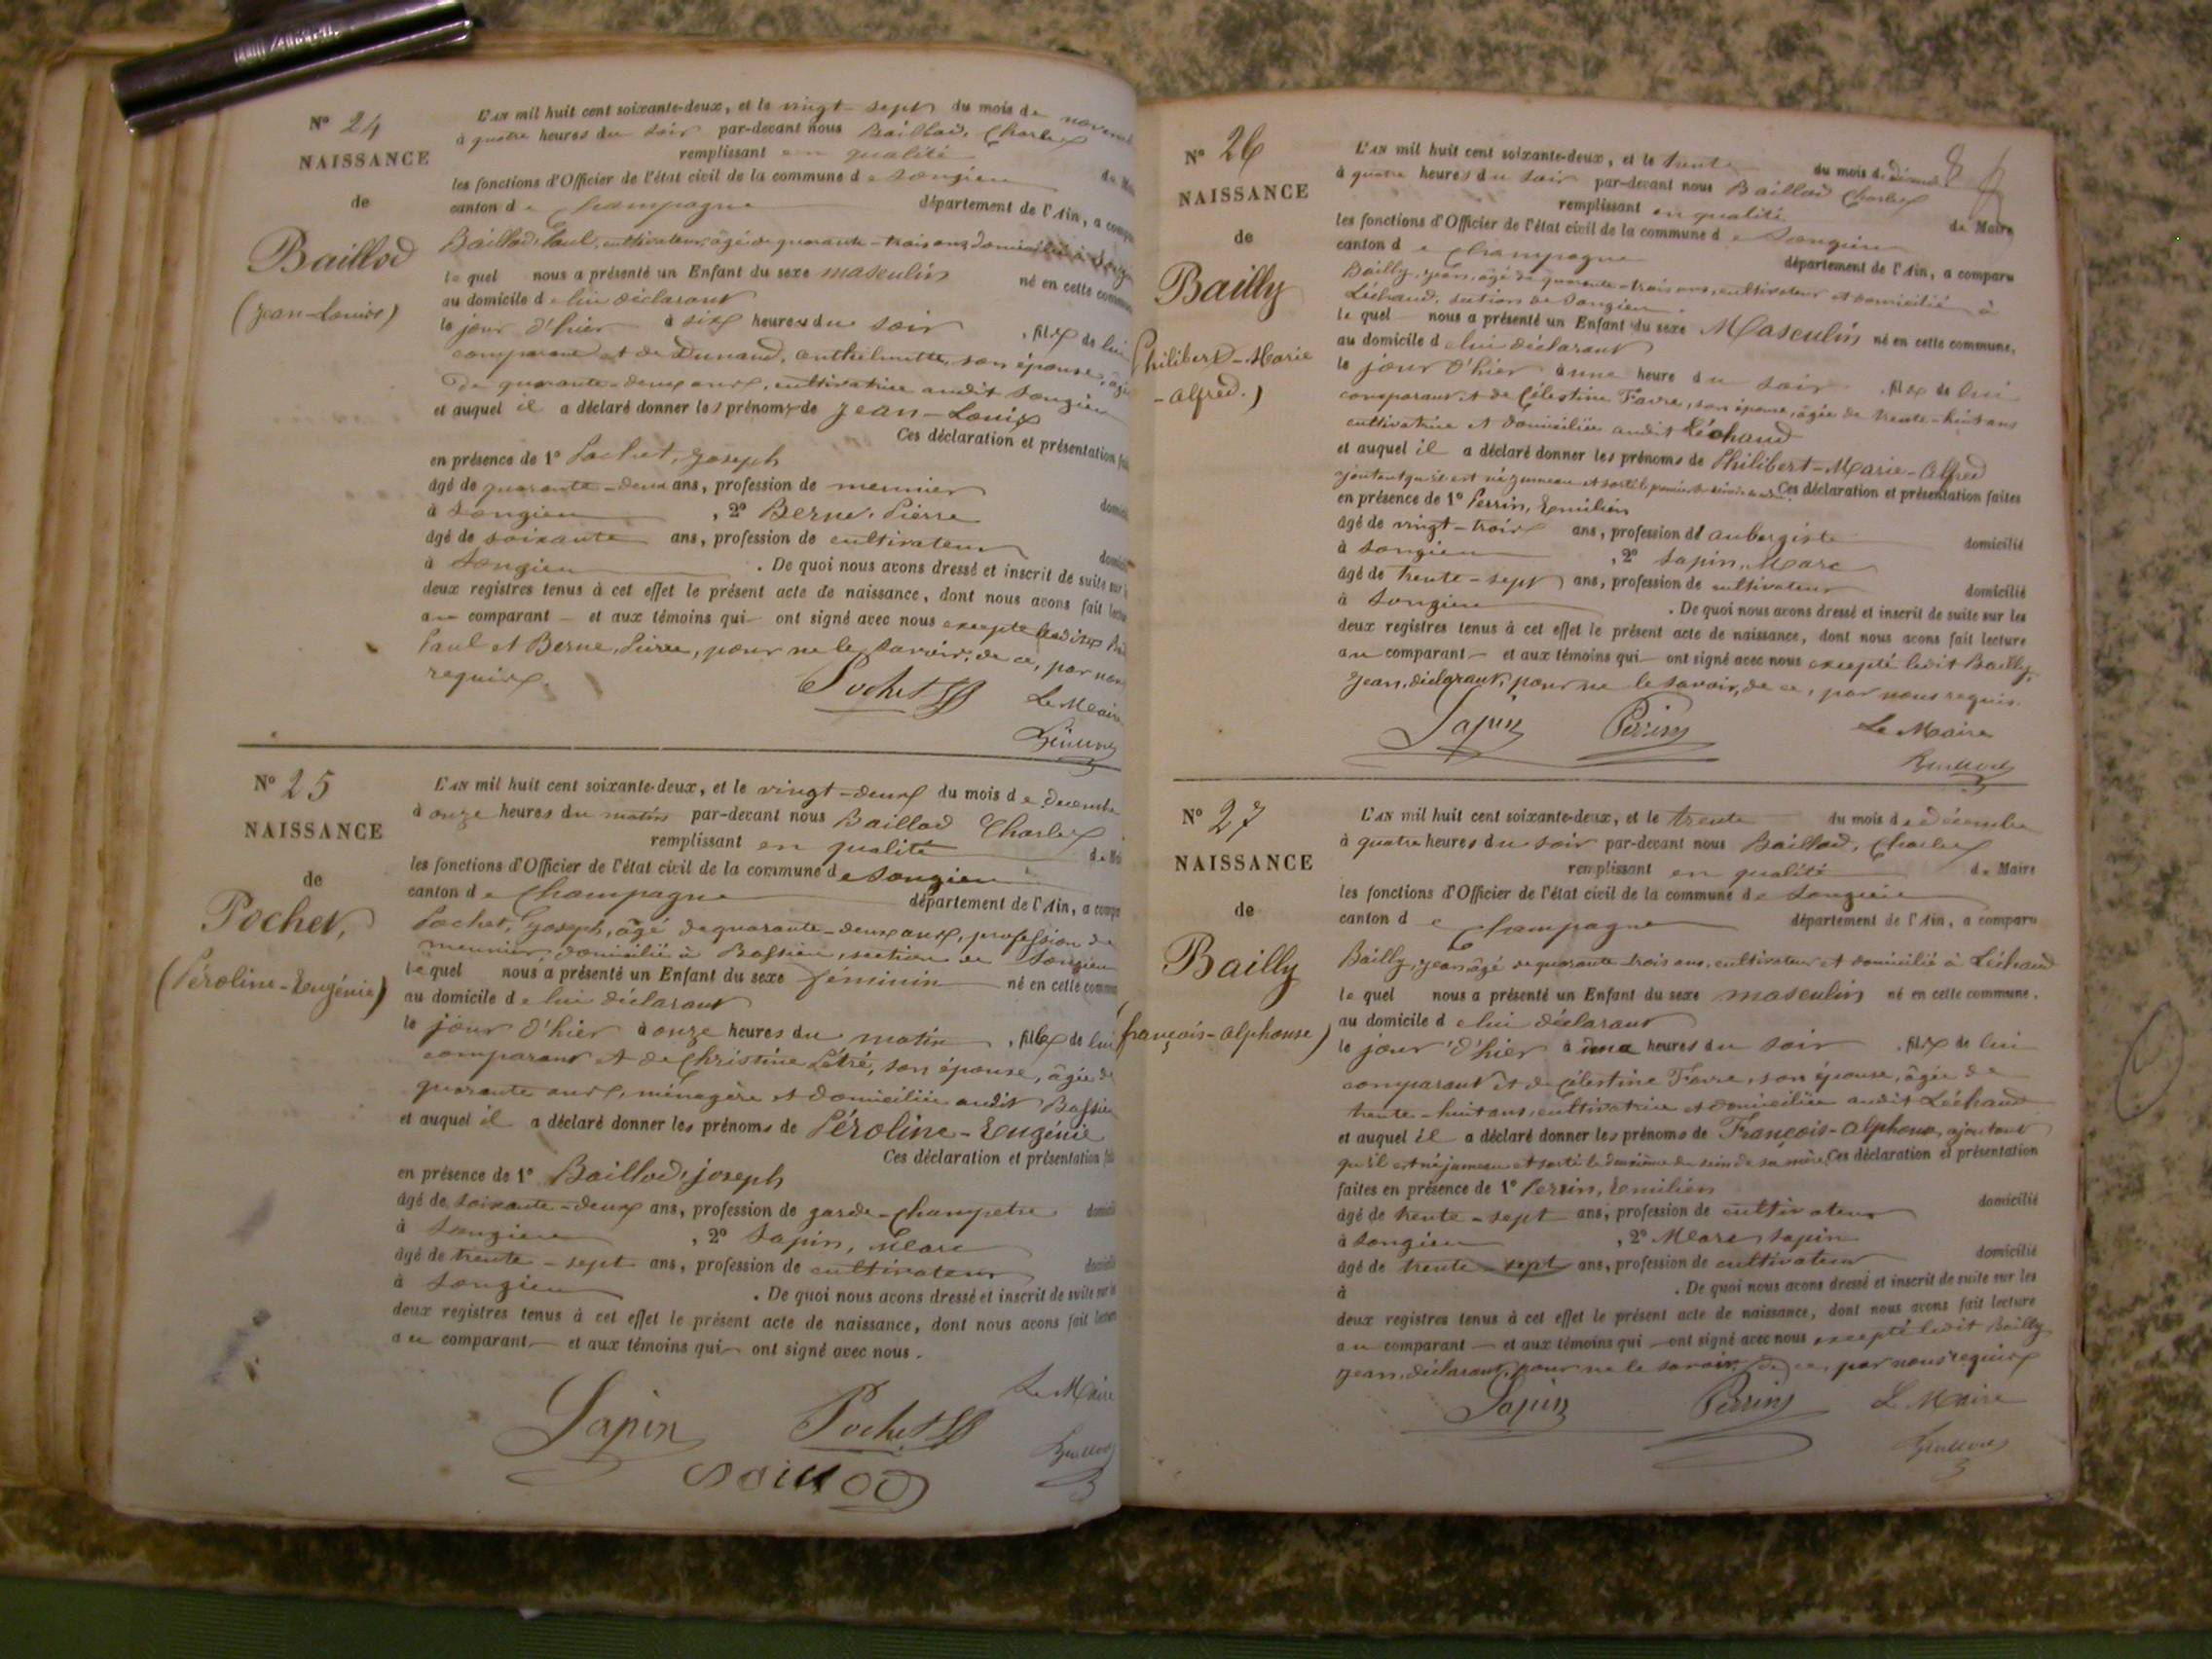 N° 24
NAISSANCE
de
Baillod
(Jean-Louis)
L'AN mil huit cent soixante-deux, et le vingt-sept du mois de
à quatre heures du soir par-devant nous Baillod, Charles
remplissant en qualité
les fonctions d'Officier de l'état civil de la commune de Songieu
canton de Champagne département de l'Ain, a
Baillod, Paul, cultivateur, âgé de quarante-trois ans, domicilié à
lequel nous a présenté un Enfant du sexe masculin né en cette
au domicile de lui déclarant
le jour d'hier à six heures du soir, fils de lui
comparant et de Dunand, Anthelmette, son épouse, âgée
de quarante-deux ans, cultivatrice audit Songieu
et auquel il a déclaré donner les prénoms de Jean-Louis
Ces déclaration et présentation
en présence de 1° Pochet, Joseph
âgé de quarante-deux ans, profession de meunier
à Songieu, 2° Berne, Pierre
âgé de soixante ans, profession de cultivateur
à Songieu. De quoi nous avons dressé et inscrit de suite sur
deux registres tenus à cet effet le présent acte de naissance, dont nous avons fait
au comparant et aux témoins qui ont signé avec nous excepté
Paul et Berne, Pierre, pour ne le savoir, de ce, par nous
requis.
Pochet Le Maire
N° 25
NAISSANCE
de
Pochet,
(Péroline-Eugénie)
L'AN mil huit cent soixante-deux, et le vingt-deux du mois de décembre
à onze heures du matin par-devant nous Baillod Charles
remplissant en qualité
les fonctions d'Officier de l'état civil de la commune de Songieu
canton de Champagne département de l'Ain, a
Pochet, Joseph, âgé de quarante-deux ans, profession de
meunier, domicilié à Bassieu, section de Songieu
lequel nous a présenté un Enfant du sexe féminin né en cette
au domicile de lui déclarant
le jour d'hier à onze heures du matin, fille de lui
comparant et de Christine Létré, son épouse, âgée de
quarante ans, ménagère et domiciliée audit Bassieu
et auquel il a déclaré donner les prénoms de Péroline-Eugénie
Ces déclaration et présentation
en présence de 1° Baillod, Joseph
âgé de soixante-deux ans, profession de garde-champetre
à Songieu, 2° Sapin, Marc
âgé de trente-sept ans, profession de cultivateur
à Songieu. De quoi nous avons dressé et inscrit de suite sur
deux registres tenus à cet effet le présent acte de naissance, dont nous avons fait
au comparant et aux témoins qui ont signé avec nous.
Le Maire
Sapin Pochet
Baillod
N° 26
NAISSANCE
de
Bailly
Philibert-Marie
-Alfred.)
L'AN mil huit cent soixante-deux, et le trente du mois de
à quatre heures du soir par-devant nous Baillod Charles
remplissant en qualité de Maire
les fonctions d'Officier de l'état civil de la commune de Songieu
canton de Champagne département de l'Ain, a comparu
Bailly, Jean, âgé de quarante-trois ans, cultivateur et domicilié à
Léchaud, section de Songieu.
lequel nous a présenté un Enfant du sexe Masculin né en cette commune,
au domicile de lui déclarant
le jour d'hier à une heure du soir, fils de lui
comparant et de Célestine Favre, son épouse, âgée de trente-huit ans
cultivatrice et domiciliée audit Léchaud
et auquel il a déclaré donner les prénoms de Philibert-Marie-Alfred
ajoutant qu'il est né jumeau et sorti le premier Ces déclaration et présentation faites
en présence de 1° Perrin, Emilien
âgé de vingt-trois ans, profession d'aubergiste domicilié
à Songieu, 2° Sapin, Marc
âgé de trente-sept ans, profession de cultivateur domicilié
à Songieu. De quoi nous avons dressé et inscrit de suite sur les
deux registres tenus à cet effet le présent acte de naissance, dont nous avons fait lecture
au comparant et aux témoins qui ont signé avec nous excepté ledit Bailly,
Jean, déclarant, pour ne le savoir, de ce, par nous requis.
Sapin Perrin Le Maire
N° 27
NAISSANCE
de
Bailly
(François-Alphonse)
L'AN mil huit cent soixante-deux, et le trente du mois de décembre
à quatre heures du soir par-devant nous Baillod, Charles
remplissant en qualité de Maire
les fonctions d'Officier de l'état civil de la commune de Songieu
canton de Champagne département de l'Ain, a comparu
Bailly, Jean âgé de quarante-trois ans, cultivateur et domicilié à Léchaud
lequel nous a présenté un Enfant du sexe masculin né en cette commune,
au domicile de lui déclarant
le jour d'hier à une heures du soir, fils de lui
comparant et de Célestine Favre, son épouse, âgée de
trente-huit ans, cultivatrice et domiciliée audit Léchaud
et auquel il a déclaré donner les prénoms de François-Alphonse, ajoutant
qu'il est né jumeau et sorti le deuxième du sein de sa mère. Ces déclaration et présentation
faites en présence de 1° Perrin, Emilien
âgé de trente-sept ans, profession de cultivateur domicilié
à Songieu, 2° Marc Sapin
âgé de trente-sept ans, profession de cultivateur domicilié
à . De quoi nous avons dressé et inscrit de suite sur les
deux registres tenus à cet effet le présent acte de naissance, dont nous avons fait lecture
au comparant et aux témoins qui ont signé avec nous excepté ledit Bailly
Jean, déclarant, pour ne le savoir, de ce, par nous requis
Sapin Perrin Le Maire